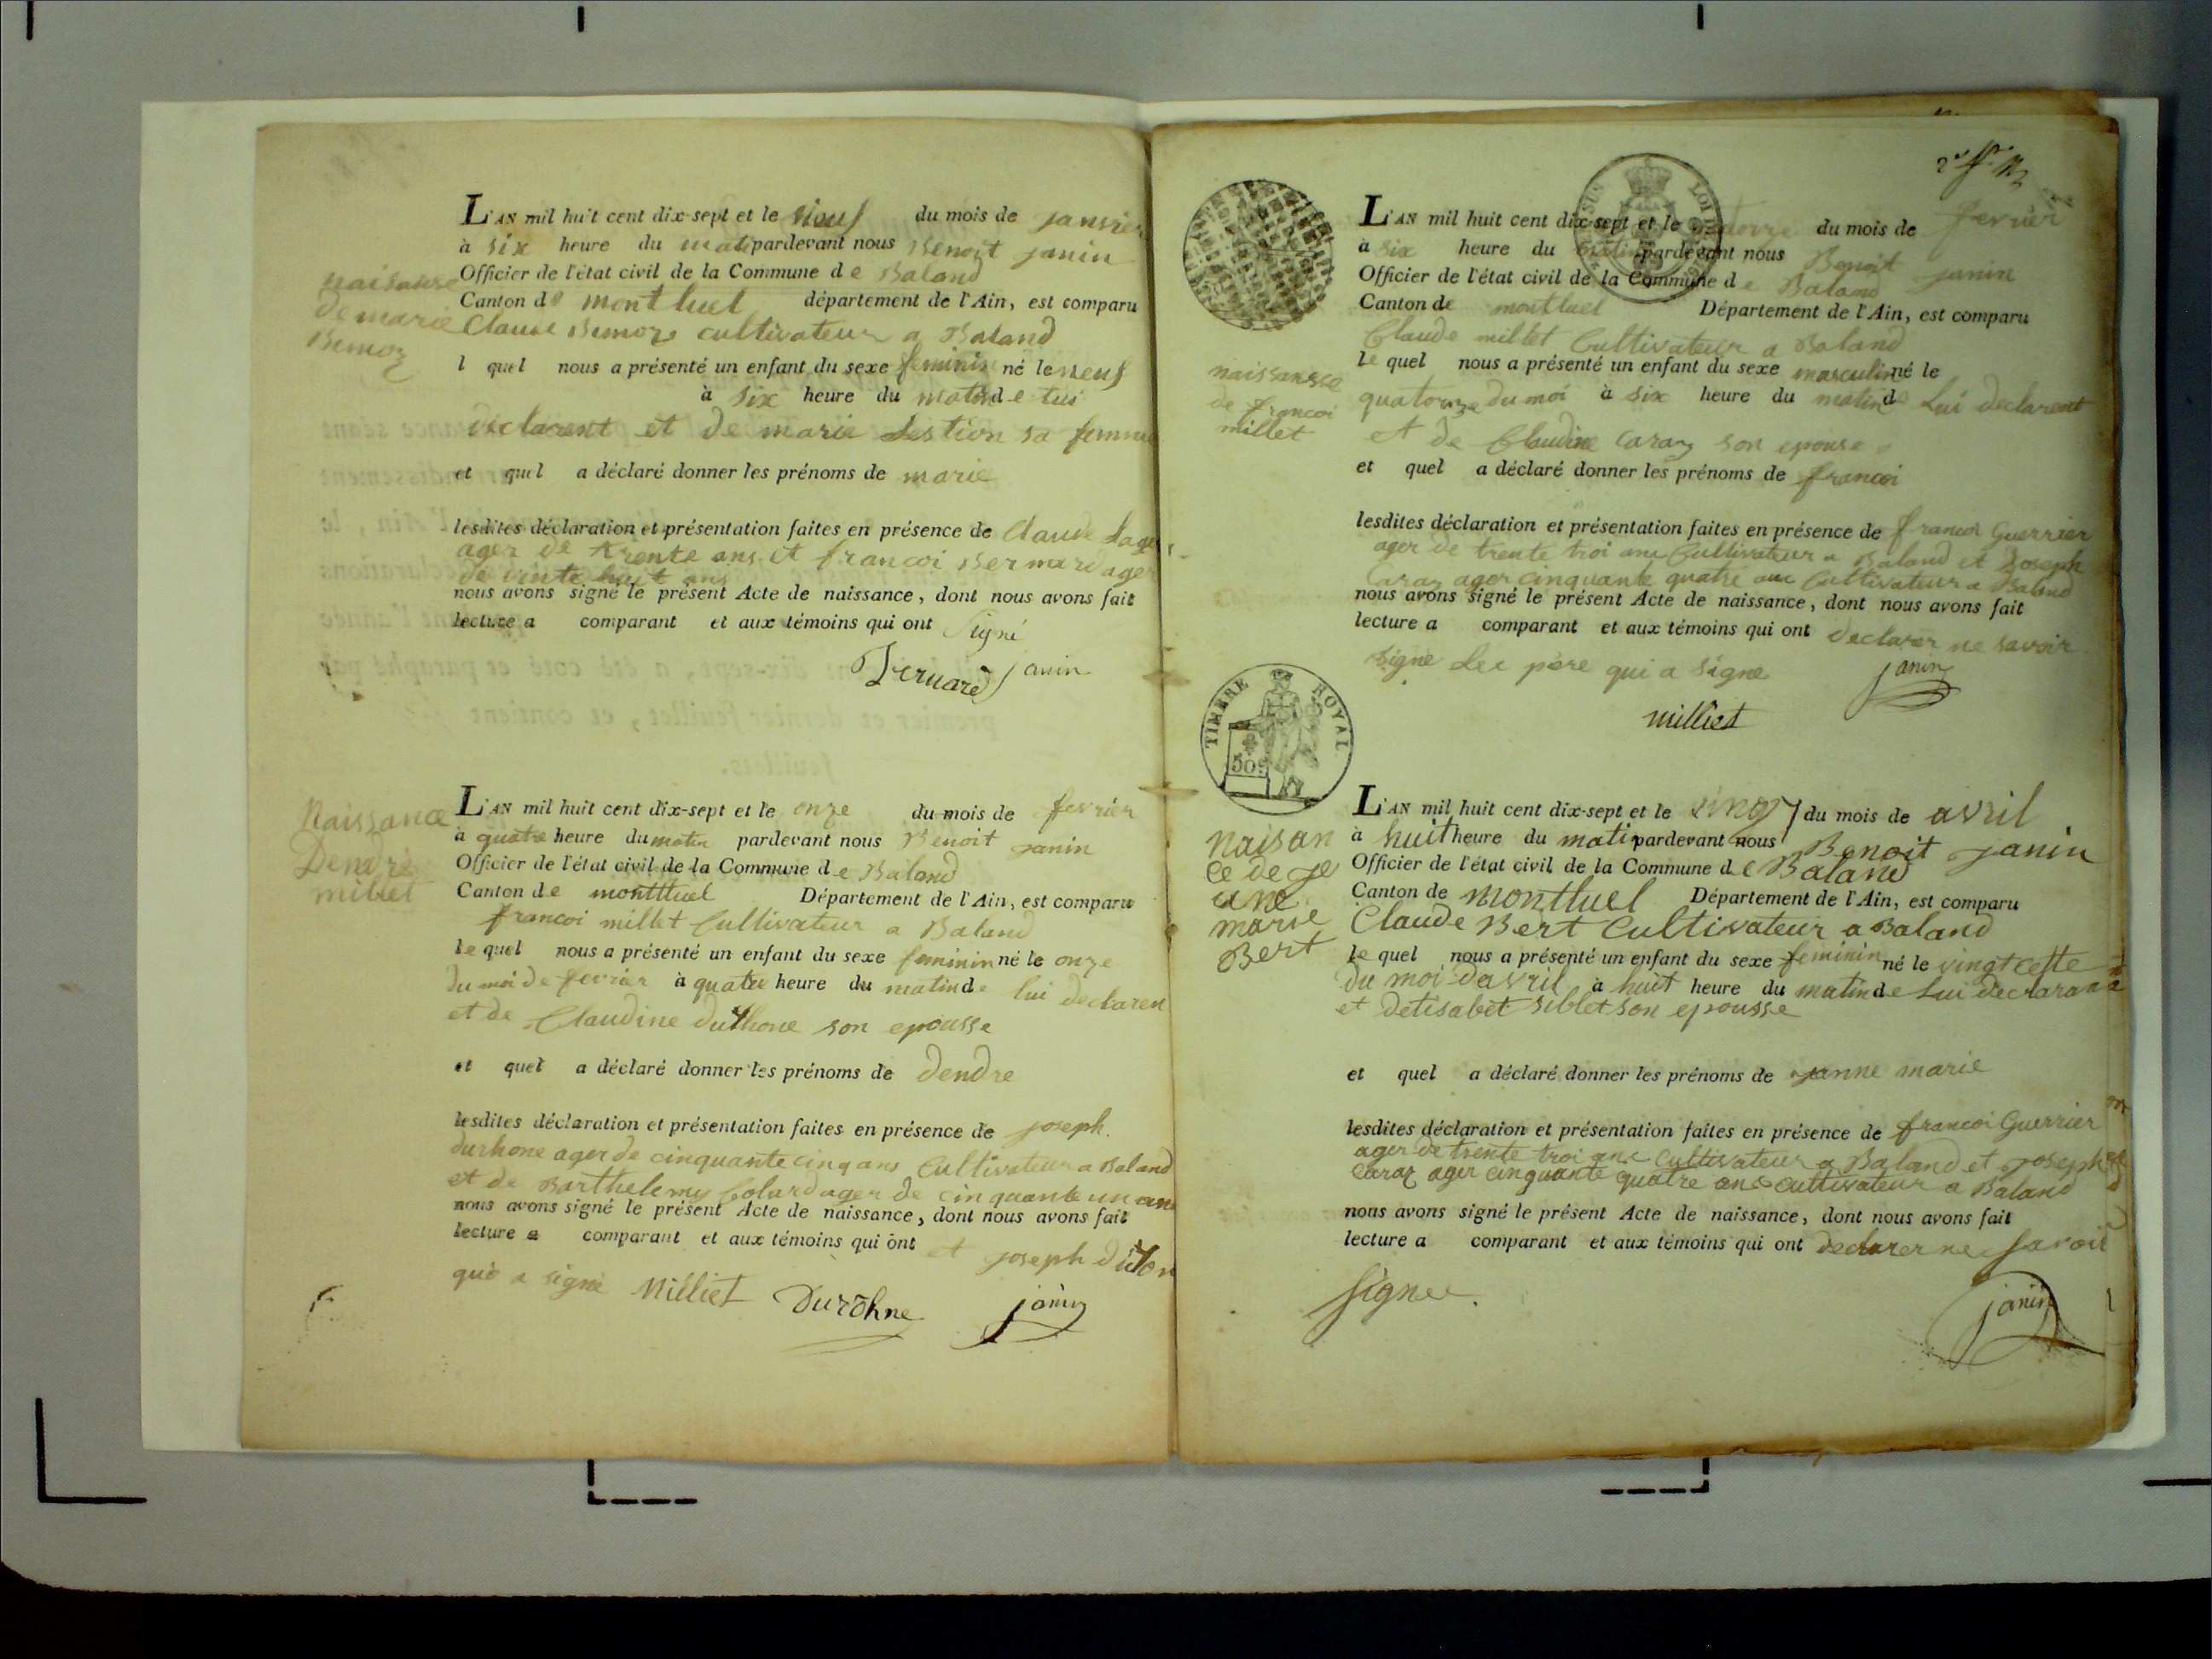 naisance
de marie
Bimoz
L'AN mil huit cent dix-sept et le neuf du mois de janvier
à six heure du matin pardevant nous Benoit janin
Officier de l'état civil de la Commune de Baland
Canton de montluel département de l'Ain, est comparu
Claude Bimoz cultivateur a Baland
l quel nous a présenté un enfant du sexe feminin né le neuf
à six heure du matin de lui
declarent et de marie Lestion sa femme
et quel a déclaré donner les prénoms de marie
lesdites déclaration et présentation faites en présence de Claude
ager de trente ans et francoi Bernard ager
de vinte huit ans
nous avons signé le présent Acte de naissance, dont nous avons fait
lecture a comparant et aux témoins qui ont signé
Bernard janin
Naissance
Dendre
millet
L'AN mil huit cent dix-sept et le onze du mois de fevrier
à quatre heure du matin pardevant nous Benoit janin
Officier de l'état civil de la Commune de Baland
Canton de montluel Département de l'Ain, est comparu
francoi millet Cultivateur a Baland
le quel nous a présenté un enfant du sexe feminin né le onze
du moi de fevrier à quatre heure du matin de lui declaren
et de Claudine duthone son epousse
et quel a déclaré donner les prénoms de dendre
lesdites déclaration et présentation faites en présence de joseph
durhone ager de cinquante cinq ans Cultivateur a Baland
et de Barthelemy Colard ager de cinquante un ans
nous avons signé le présent Acte de naissance, dont nous avons fait
lecture a comparant et aux témoins qui ont et joseph
qui a signé Milliet Durohne janin
L'AN mil huit cent dix-sept et le quatorze du mois de fevrier
à six heure du matin pardevant nous Benoit janin
Officier de l'état civil de la Commune de Baland
Canton de montluel Département de l'Ain, est comparu
Claude millet Cultivateur a Baland
naissansce
de francoi
millet
le quel nous a présenté un enfant du sexe masculin né le
quatorze du moi à six heure du matin de Lui declarent
et de Claudine Caraz son epouse
et quel a déclaré donner les prénoms de francoi
lesdites déclaration et présentation faites en présence de francoi Guerrier
ager de trente troi anc Cultivateur a Baland et Joseph
Caraz ager cinquante quatre anc Cultivateur a Baland
nous avons signé le présent Acte de naissance, dont nous avons fait
lecture a comparant et aux témoins qui ont declarer ne savoir
signe Lec pere qui a signe janin
milliet
TIMBRE ROYAL
50c
naisan
ce de je
ane
marie
Bert
L'AN mil huit cent dix-sept et le vingt 7 du mois de avril
à huit heure du matin pardevant nous Benoit janin
Officier de l'état civil de la Commune de Baland
Canton de montluel Département de l'Ain, est comparu
Claude Bert Cultivateur a Baland
le quel nous a présenté un enfant du sexe feminin né le vingt cette
du moi davril à huit heure du matin de Lui declarant
et detisabet siblet son epousse
et quel a déclaré donner les prénoms de janne marie
lesdites déclaration et présentation faites en présence de francoi Guerrier
ager de trente troi anc Cultivateur a Baland et joseph
Caraz ager cinquante quatre anc cultivateur a Baland
nous avons signé le présent Acte de naissance, dont nous avons fait
lecture a comparant et aux témoins qui ont declarer ne savoir
signee. janin